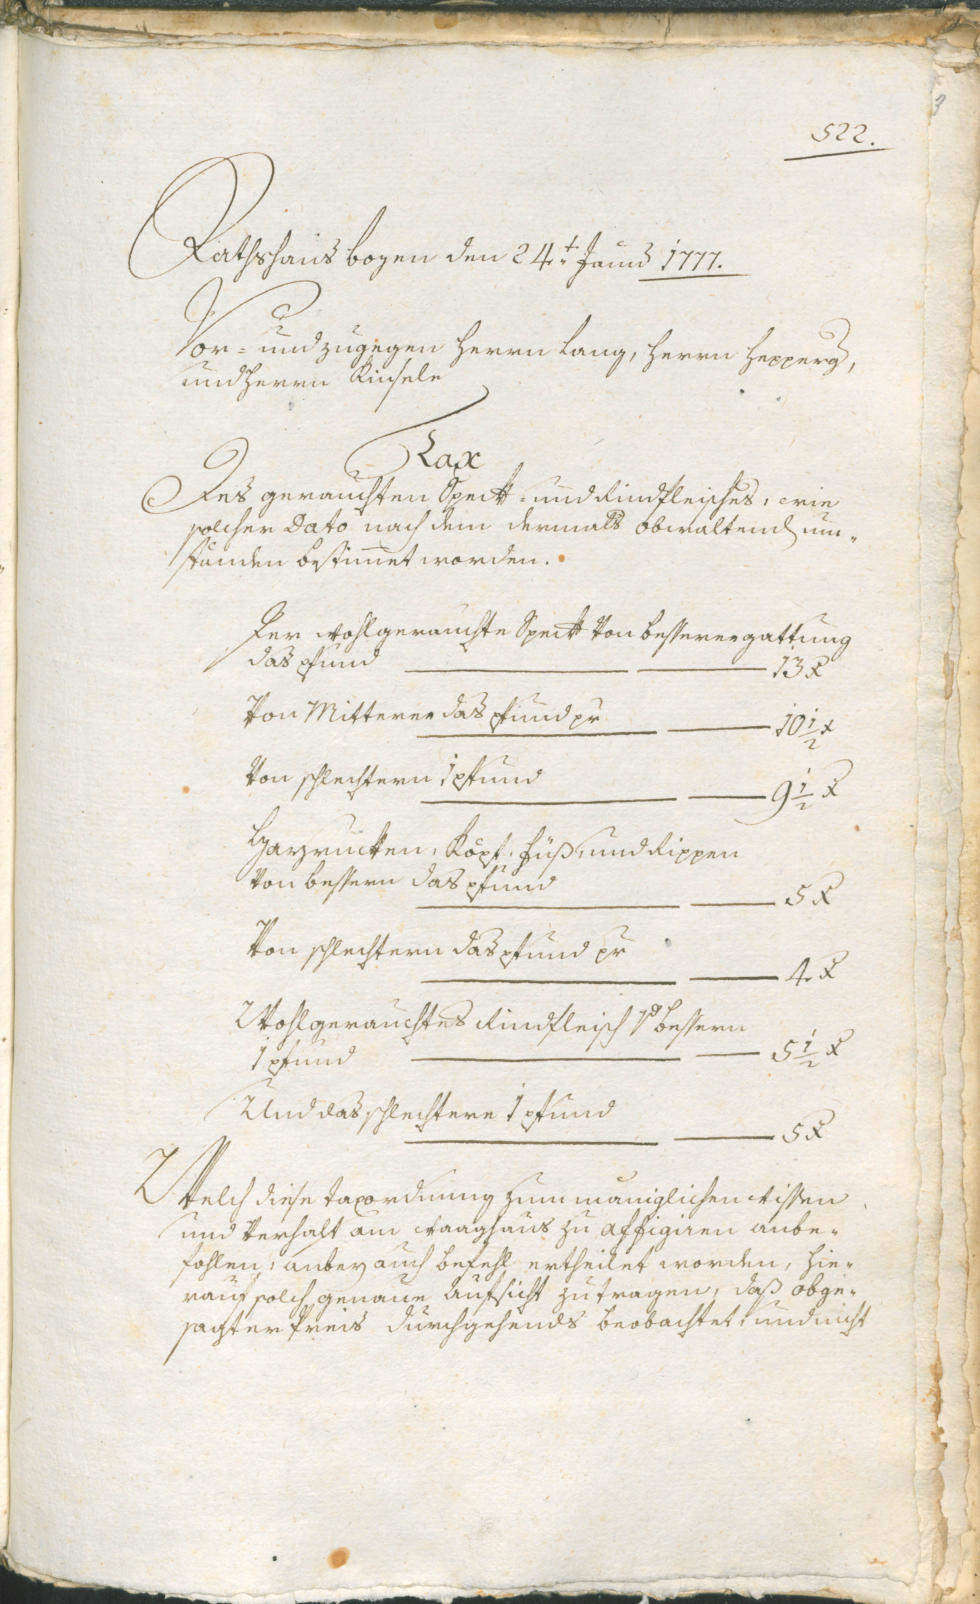 522.
Rathshaus bozen den 24.t Junÿ 1777.
Vor- und zugegen herrn Lang, herrn Hepperg,
und herrn Kinsele
Tax
Des gerauchten Speck- und Rindfleisches, wie
solcher Dato nach dem dermals obwaltend um-
ständen bestimet worden.
Der wohlgerauchte Speck von besserer gattung
das pfund 13 x
Von Mitterer das pfund pr 10 1/2 x
Von schlechtern 1 pfund 9 1/2 x
Harzrucken, Köpf, füß, und Rippen
von bessern das pfund 5 x
Von schlechtern das pfund pr 4 x
Wohlgerauchtes Rindfleisch bessern
1 pfund 5 1/2 x
Und das schlechtere 1 pfund 5 x
Welch diese taxordnung zum maniglichen wissen
und verhalt am waaghaus zu affigiren anbe-
fohlen, anbeÿ auch befehl ertheilet worden, hie-
rauf solch genaue Aufsicht zutragen, daß obge-
sagter Preis durchgehends beobachtet und nicht